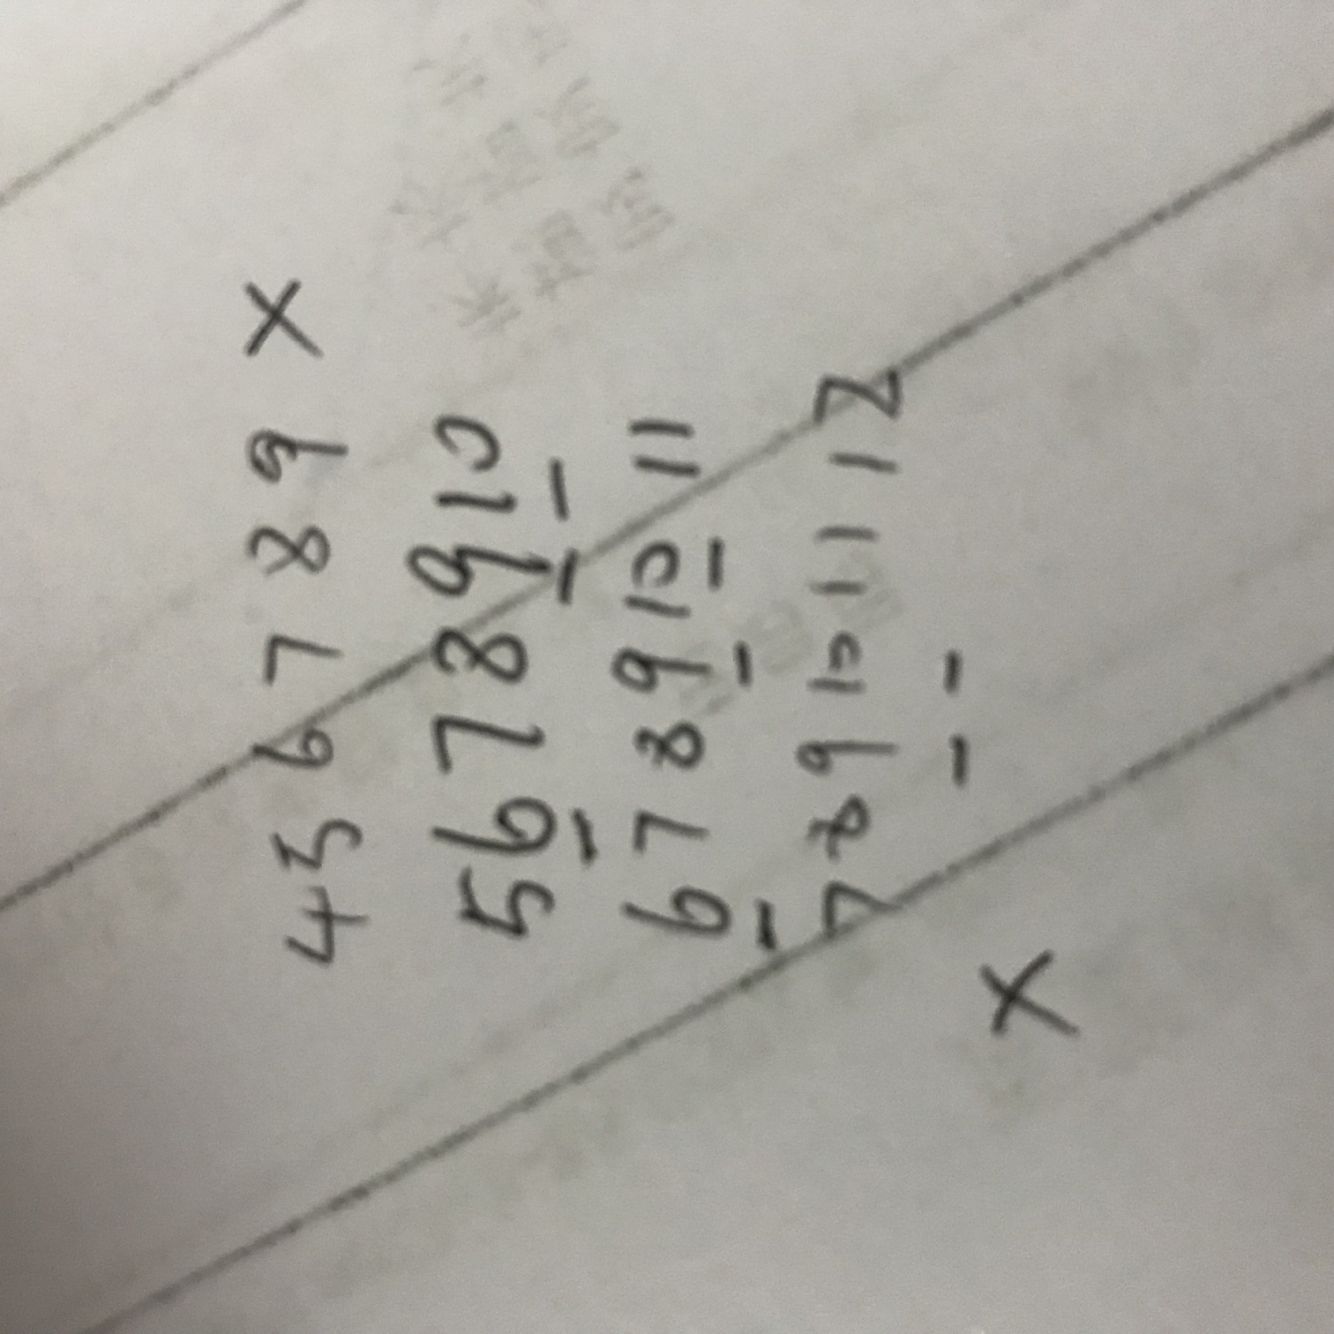 4 5 6 7 8 9 ×
5 6 7 8 9 10
6 7 8 9 10 11
7 8 9 10 11 12
×